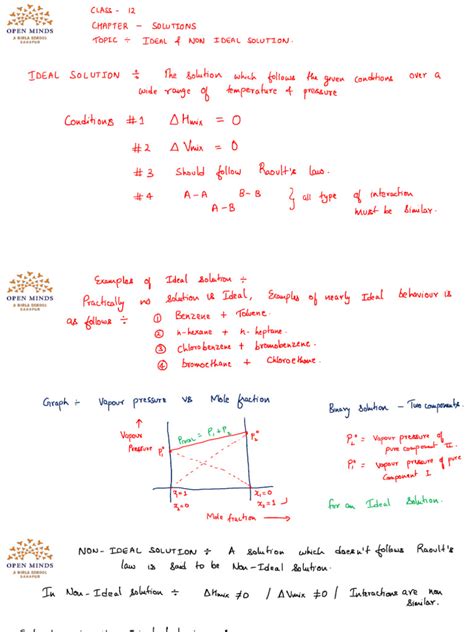 OPEN MINDS
A BIRLA SCHOOL
CLASS - 12
CHAPTER - SOLUTIONS
TOPIC ÷ IDEAL & NON IDEAL SOLUTION.
IDEAL SOLUTION ÷ The solution which follows the given conditions over a
wide range of temperature & pressure
Conditions #1 ΔHmix = 0
#2 ΔVmix = 0
#3 Should follow Raoult's law.
#4 A-A B-B } all type of interaction
A-B must be similar.
OPEN MINDS
A BIRLA SCHOOL
Examples of Ideal solution ÷
Practically no solution is Ideal, Examples of nearly Ideal behaviour is
as follows ÷ ① Benzene + Toluene.
② n-hexane + n-heptane.
③ Chlorobenzene + bromobenzene.
④ bromoethane + Chloroethane.
Graph ÷ Vapour pressure vs Mole fraction
Binary solution - Two components.
Vapour
Pressure P₁° Ptotal = P₁+P₂ P₂°
P₂° = Vapour pressure of
pure component II.
P₁° = Vapour pressure of pure
Component I.
x₁=1 x₁=0
x₂=0 x₂=1
Mole fraction →
for an Ideal Solution.
OPEN MINDS
A BIRLA SCHOOL
NON-IDEAL SOLUTION ÷ A solution which doesn't follows Raoult's
law is said to be Non-Ideal Solution.
In Non-Ideal solution ÷ ΔHmix ≠0 / ΔVmix ≠0 / Interactions are non
Similar.